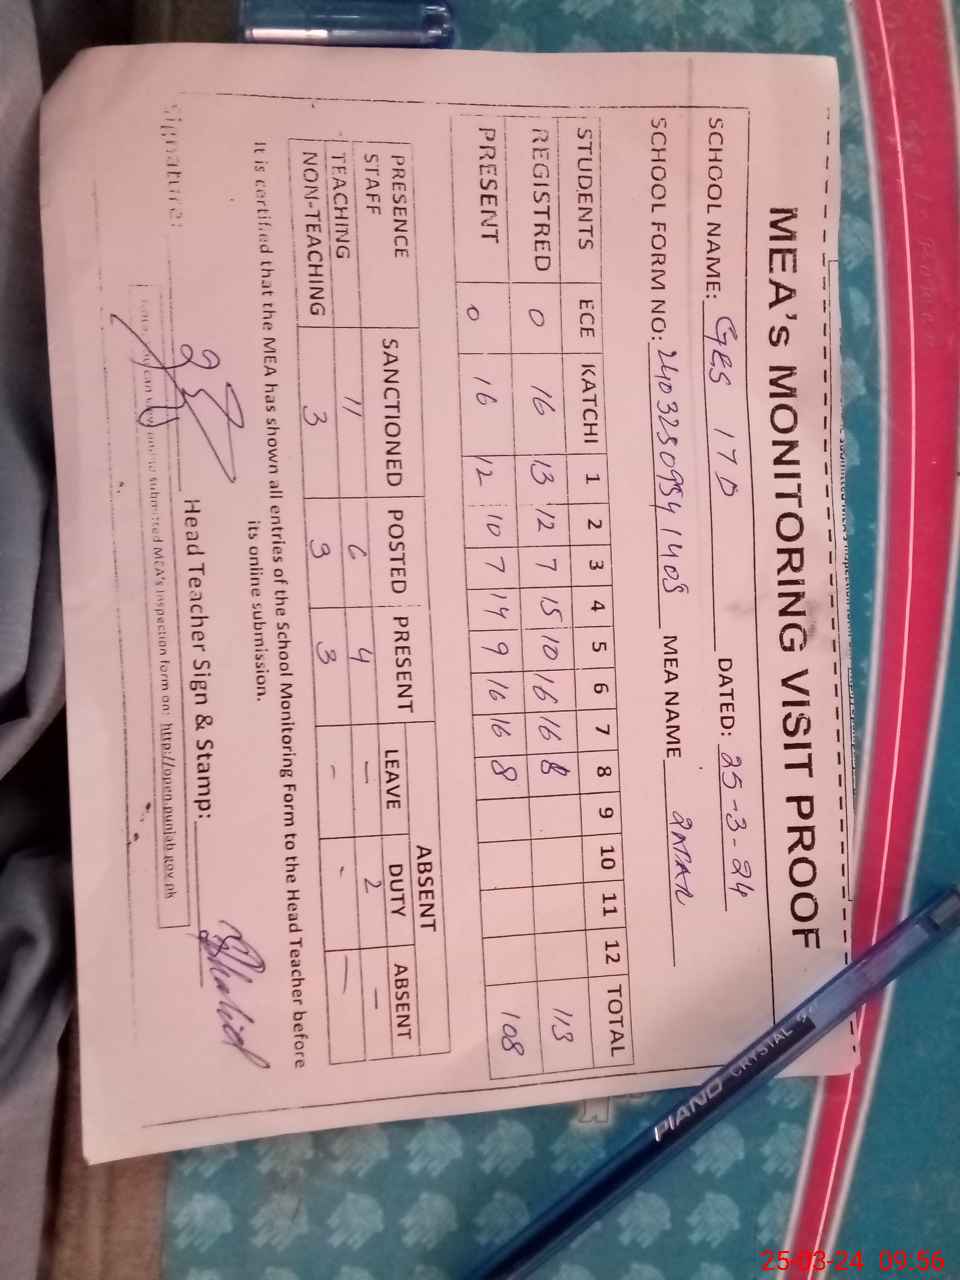 MEA's MONITORING VISIT PROOF
SCHOOL NAME: GES 17 D DATED: 25-3-24
SCHOOL FORM NO: MEA NAME
STUDENTS ECE KATCHI 1 2 3 4 5 6 7 8 9 10 11 12 TOTAL
REGISTRED 0 16 13 12 7 15 10 16 16 8 113
PRESENT 0 16 12 10 7 14 9 16 16 8 108
PRESENCE SANCTIONED POSTED PRESENT ABSENT
STAFF LEAVE DUTY ABSENT
TEACHING 11 6 4 - 2 -
NON-TEACHING 3 3 3 - - -
It is certified that the MEA has shown all entries of the School Monitoring Form to the Head Teacher before
its online submission.
Signature: Head Teacher Sign & Stamp: Shahid
can view online submitted MEA's inspection form on: http://open.punjab.gov.pk
PIANO CRYSTAL
25-03-24 09:56